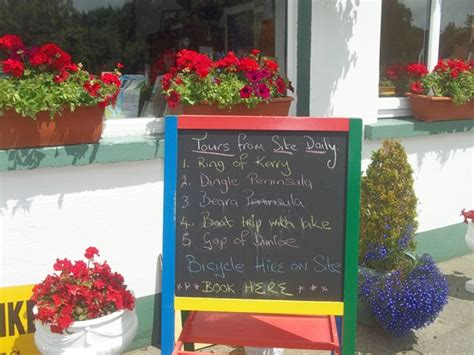 Tours from Site Daily
1. Ring of Kerry
2. Dingle Peninsula
3. Beara Peninsula
4. Boat trip with lake
5. Gap of Dunloe
Bicycle Hire on Site
* P * BOOK HERE * *
IKE